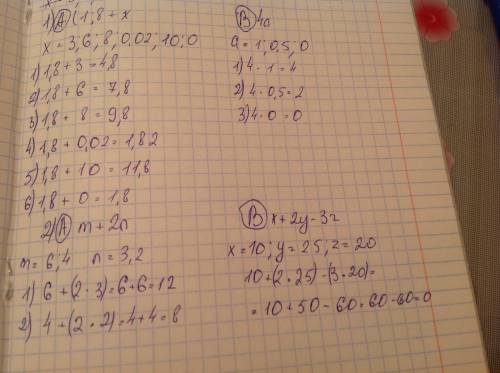 1) A (1,8 + x
x = 3; 6; 8; 0,02; 10; 0
1) 1,8 + 3 = 4,8
2) 1,8 + 6 = 7,8
3) 1,8 + 8 = 9,8
4) 1,8 + 0,02 = 1,82
5) 1,8 + 10 = 11,8
6) 1,8 + 0 = 1,8
B 4a
a = 1; 0,5; 0
1) 4 · 1 = 4
2) 4 · 0,5 = 2
3) 4 · 0 = 0
2) A m + 2n
m = 6; 4 n = 3, 2
1) 6 + (2 · 3) = 6 + 6 = 12
2) 4 + (2 · 2) = 4 + 4 = 8
B x + 2y - 3z
x = 10; y = 25; z = 20
10 + (2 · 25) - (3 · 20) =
= 10 + 50 - 60 = 60 - 60 = 0